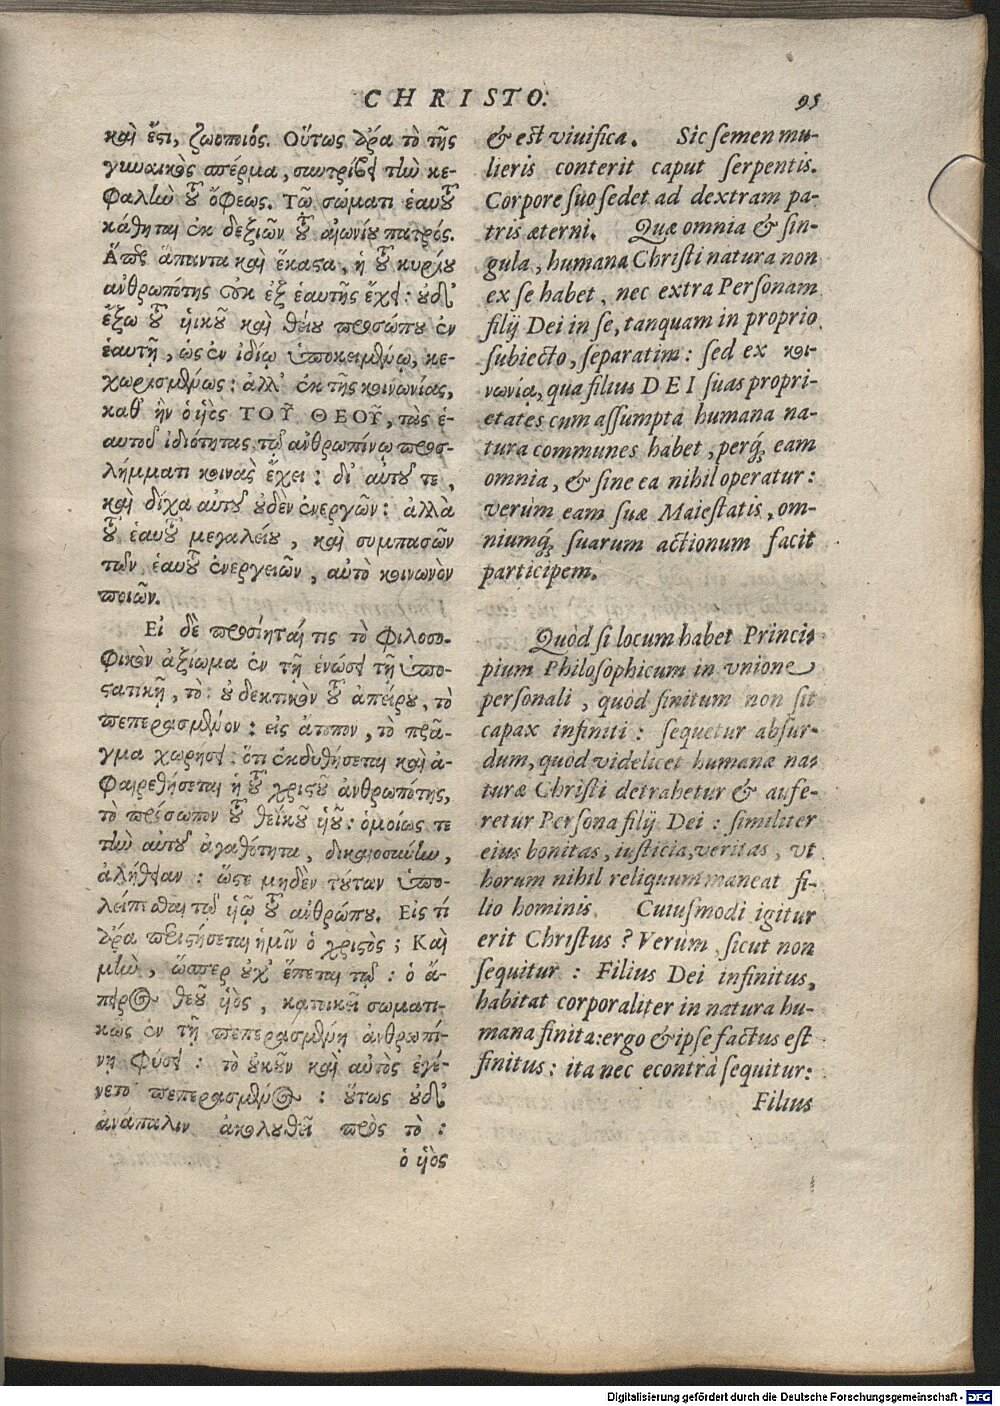 CHRISTO.
95
καὶ ἔστι, ζωοποιός. Οὕτως ἄρα τὸ τῆς
γυναικὸς σπέρμα, συντρίβει τὴν κε-
φαλὴν τοῦ ὄφεως. Τῷ σώματι ἑαυτοῦ
κάθηται ἐκ δεξιῶν τοῦ αἰωνίου πατρός.
Ἅπερ ἅπαντα καὶ ἕκαστα, ἡ τοῦ κυρίου
ἀνθρωπότης οὐκ ἐξ ἑαυτῆς ἔχει: οὐδ'
ἔξω τοῦ ὑικοῦ καὶ θείου προσώπου ἐν
ἑαυτῇ, ὡς ἐν ἰδίῳ ὑποκειμένῳ, κε-
χωρισμένως: ἀλλ' ἐκ τῆς κοινωνίας,
καθ' ἣν ὁ ὑὸς ΤΟΥ͂ ΘΕΟΥ͂, τὰς ἑ-
αυτοῦ ἰδιότητας τῷ ἀνθρωπίνῳ προσ-
λήμματι κοινὰς ἔχει: δι' αὐτοῦ τε,
καὶ δίχα αὐτοῦ οὐδὲν ἐνεργῶν: ἀλλὰ
τοῦ ἑαυτοῦ μεγαλείου, καὶ συμπασῶν
τῶν ἑαυτοῦ ἐνεργειῶν, αὐτὸ κοινωνὸν
ποιῶν.
Εἰ δὲ προσίηταί τις τὸ φιλοσο-
φικὸν ἀξίωμα ἐν τῇ ἑνώσει τῇ ὑπο-
στατικῇ, τὸ: οὐ δεκτικὸν τοῦ ἀπείρου, τὸ
πεπερασμένον: εἰς ἄτοπον, τὸ πρᾶ-
γμα χωρήσει: ὅτι ἐκδυθήσεται καὶ ἀ-
φαιρεθήσεται ἡ τοῦ χριστοῦ ἀνθρωπότης,
τὸ πρόσωπον τοῦ θεϊκοῦ ὑοῦ: ὁμοίως τε
τὴν αὐτοῦ ἀγαθότητα, δικαιοσύνην,
ἀλήθειαν: ὥστε μηδὲν τούτων ὑπο-
λείπεσθαι τῷ ὑῷ τοῦ ἀνθρώπου. Εἰς τί
ἄρα περιστήσεται ἡμῖν ὁ χριστός; Καὶ
μὴν, ὥσπερ οὐχ' ἕπεται τῷ: ὁ ἄ-
πειρος θεοῦ ὑὸς, κατοικεῖ σωματι-
κῶς ἐν τῇ πεπερασμένῃ ἀνθρωπί-
νῃ φύσει: τὸ οὐκοῦν καὶ αὐτὸς ἐγέ-
νετο πεπερασμένος: οὕτως οὐδ'
ἀνάπαλιν ἀκολουθεῖ πρὸς τὸ:
ὁ ὑὸς
& est viuifica. Sic semen mu-
lieris conterit caput serpentis.
Corpore suo sedet ad dextram pa-
tris æterni. Quæ omnia & sin-
gula, humana Christi natura non
ex se habet, nec extra Personam
filij Dei in se, tanquam in proprio
subiecto, separatim: sed ex κοι-
νωνίᾳ, qua filius DEI suas propri-
etates cum assumpta humana na-
tura communes habet, perq́; eam
omnia, & sine ea nihil operatur:
verùm eam suæ Maiestatis, om-
niumq́; suarum actionum facit
participem.
Quòd si locum habet Princi-
pium Philosophicum in vnione
personali, quòd finitum non sit
capax infiniti: sequetur absur-
dum, quòd videlicet humanæ na-
turæ Christi detrahetur & aufe-
retur Persona filij Dei: similiter
eius bonitas, iusticia, veritas, vt
horum nihil reliquum maneat fi-
lio hominis. Cuiusmodi igitur
erit Christus? Verùm sicut non
sequitur: Filius Dei infinitus,
habitat corporaliter in natura hu-
mana finita: ergo & ipse factus est
finitus: ita nec econtrà sequitur:
Filius
Digitalisierung gefördert durch die Deutsche Forschungsgemeinschaft - DFG